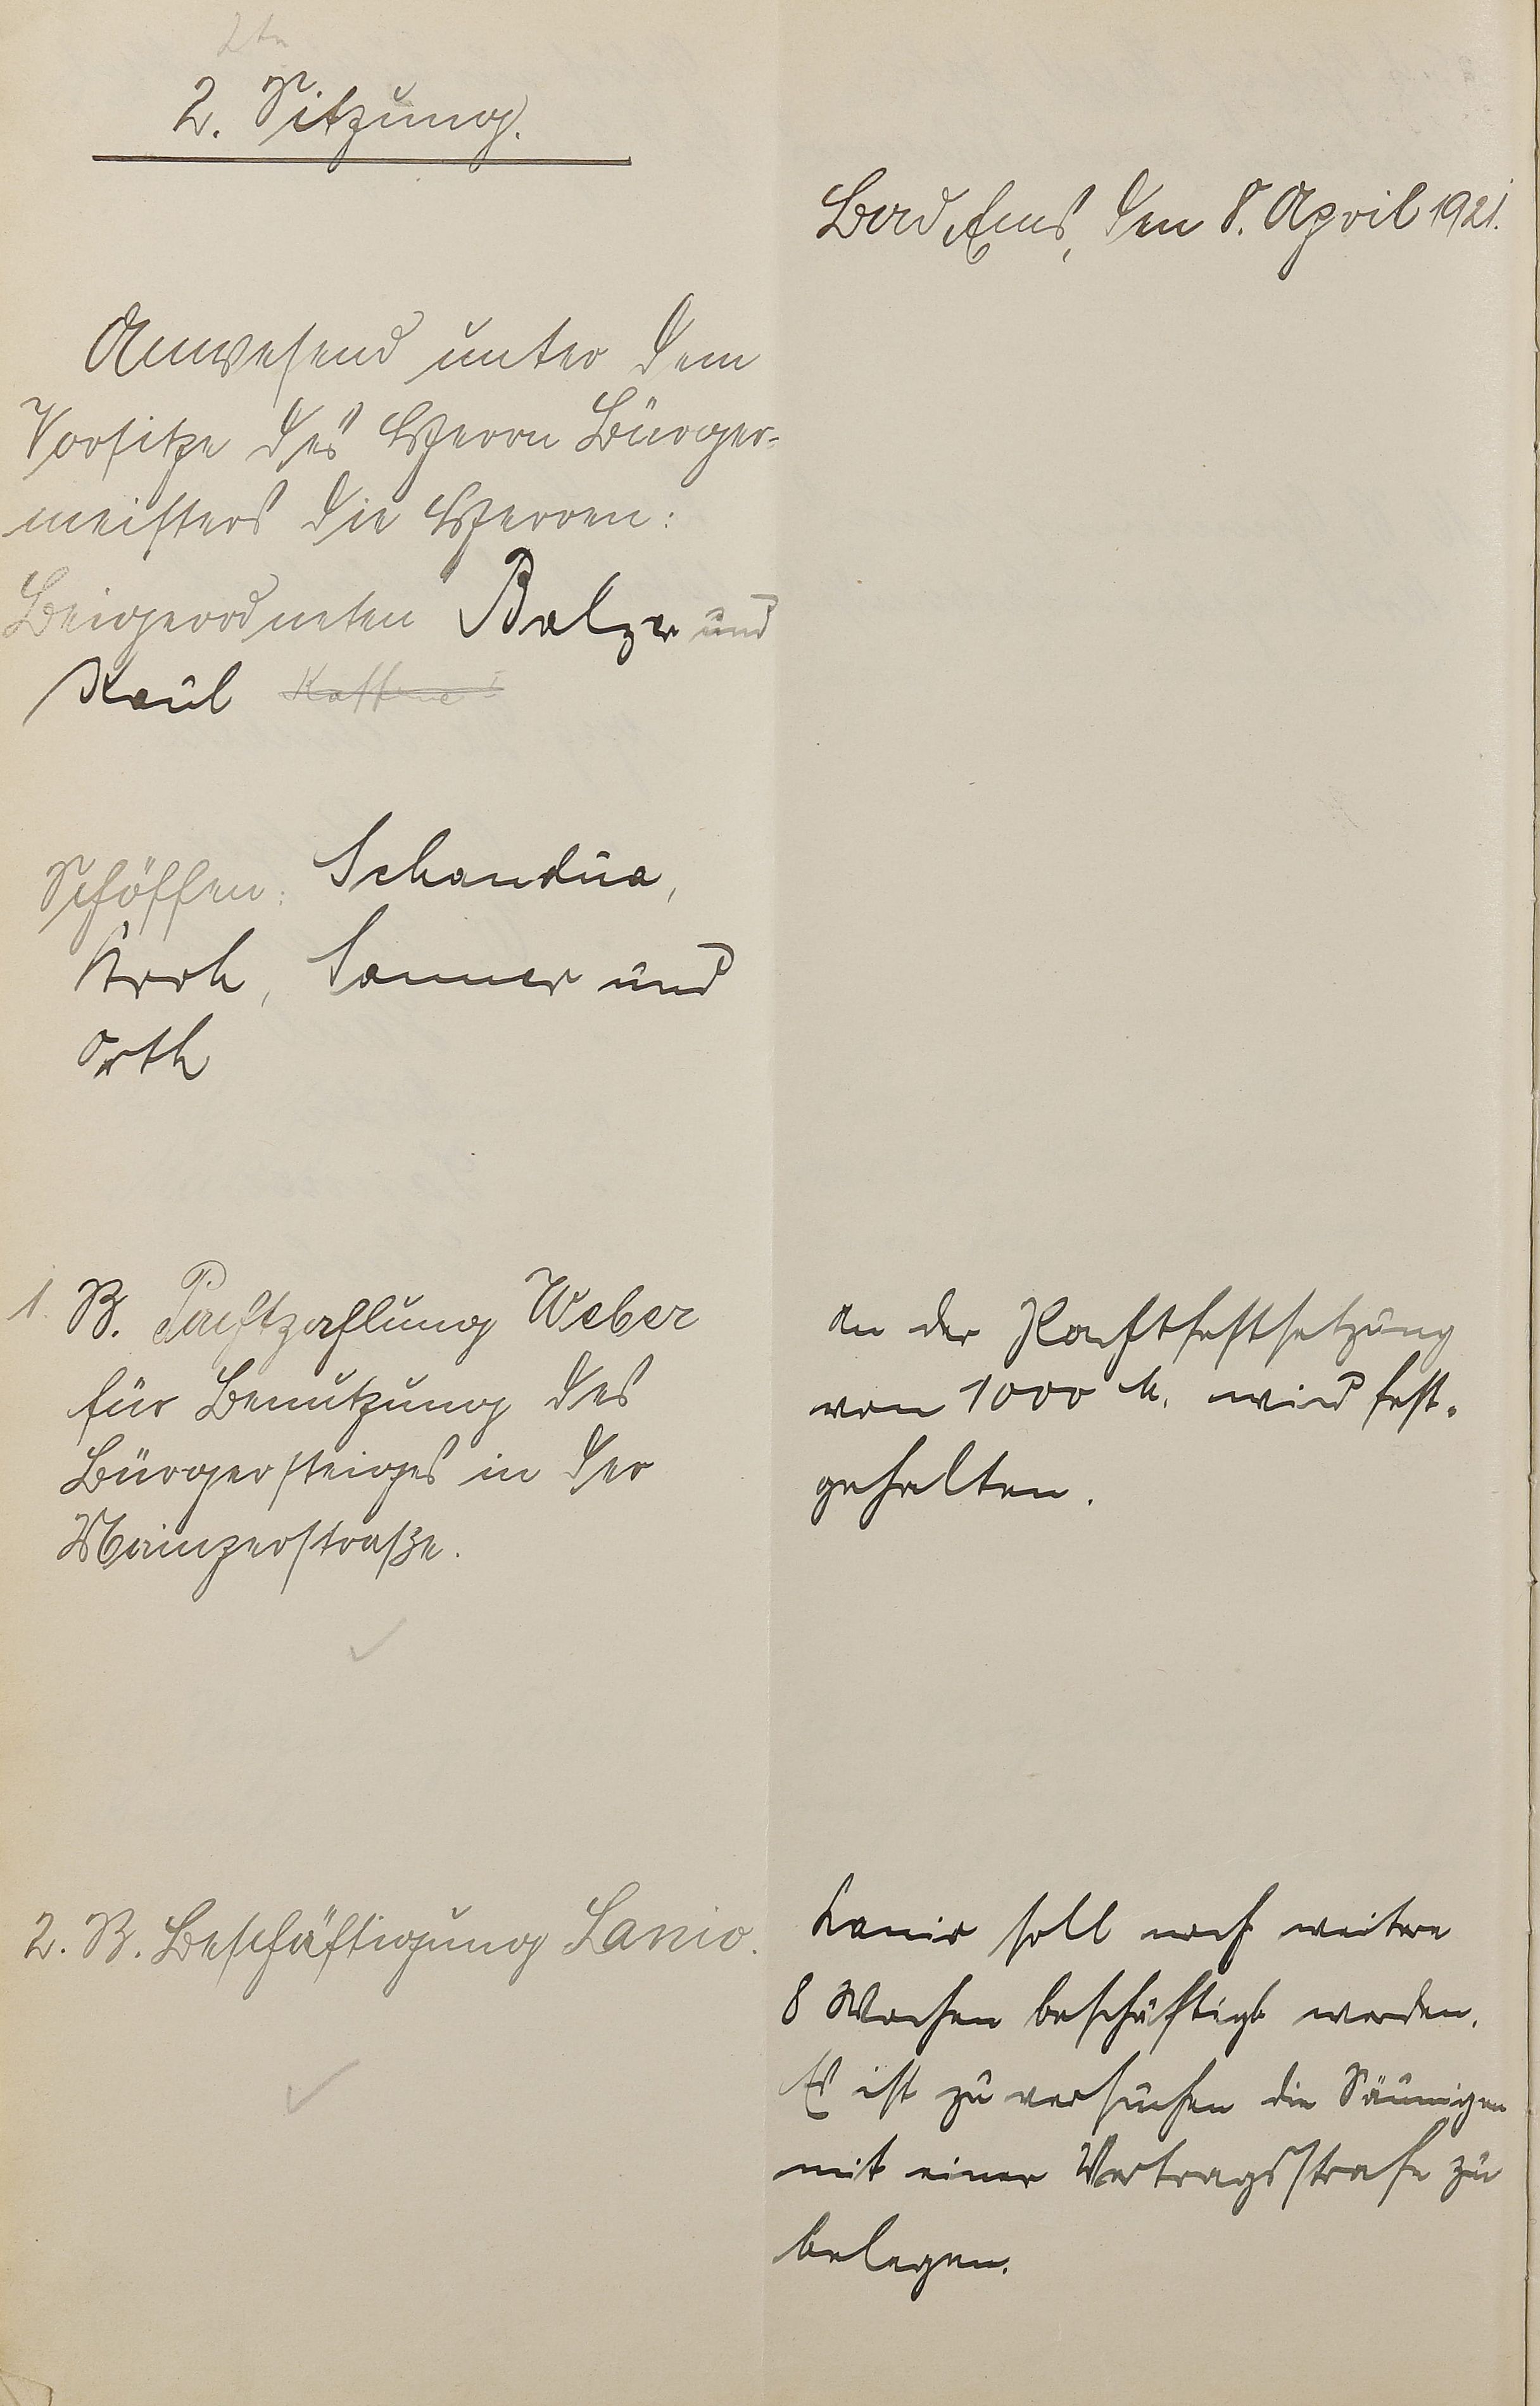 2. Sitzung.
Bad Ems, den 8. April 1921.
Anwesend unter dem
Vorsitze des Herrn Bürger-
meisters die Herren:
Beigeordneten Balzer und
Kaul
Schöffen: Schandua,
Kroh, Sanner und
Orth
1. B. Pachtzahlung Weber
für Benutzung des
Bürgersteiges in der
Mainzerstraße.
An der Pachtfestsetzung
von 1000 M. wird fest-
gehalten.
2. B. Beschäftigung Lanio.
Lanio soll noch weitere
8 Wochen beschäftigt werden.
Es ist zu versuchen die Säumigen
mit einer Vertragsstrafe zu
belegen.